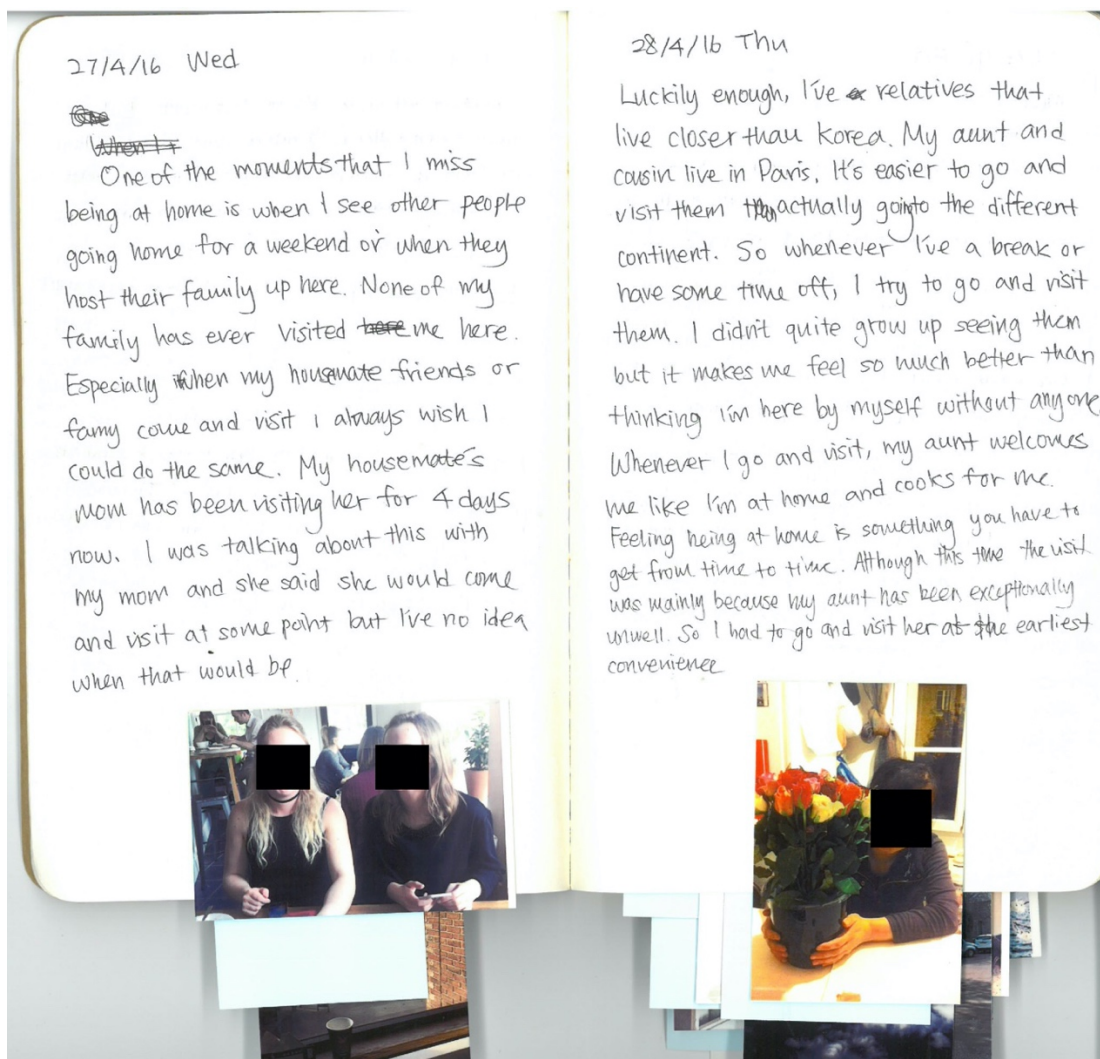 27/4/16 Wed
One of the moments that I miss
being at home is when I see other people
going home for a weekend or when they
host their family up here. None of my
family has ever visited here me here.
Especially when my housemate friends or
famy come and visit I always wish I
could do the same. My housemate's
mom has been visiting her for 4 days
now. I was talking about this with
my mom and she said she would come
and visit at some point but I've no idea
when that would be.
28/4/16 Thu
Luckily enough, I've relatives that
live closer than Korea. My aunt and
cousin live in Paris. It's easier to go and
visit them than actually going to the different
continent. So whenever I've a break or
have some time off, I try to go and visit
them. I didn't quite grow up seeing them
but it makes me feel so much better than
thinking I'm here by myself without anyone.
Whenever I go and visit, my aunt welcomes
me like I'm at home and cooks for me.
Feeling being at home is something you have to
get from time to time. Although this time the visit
was mainly because my aunt has been exceptionally
unwell. So I had to go and visit her at the earliest
convenience